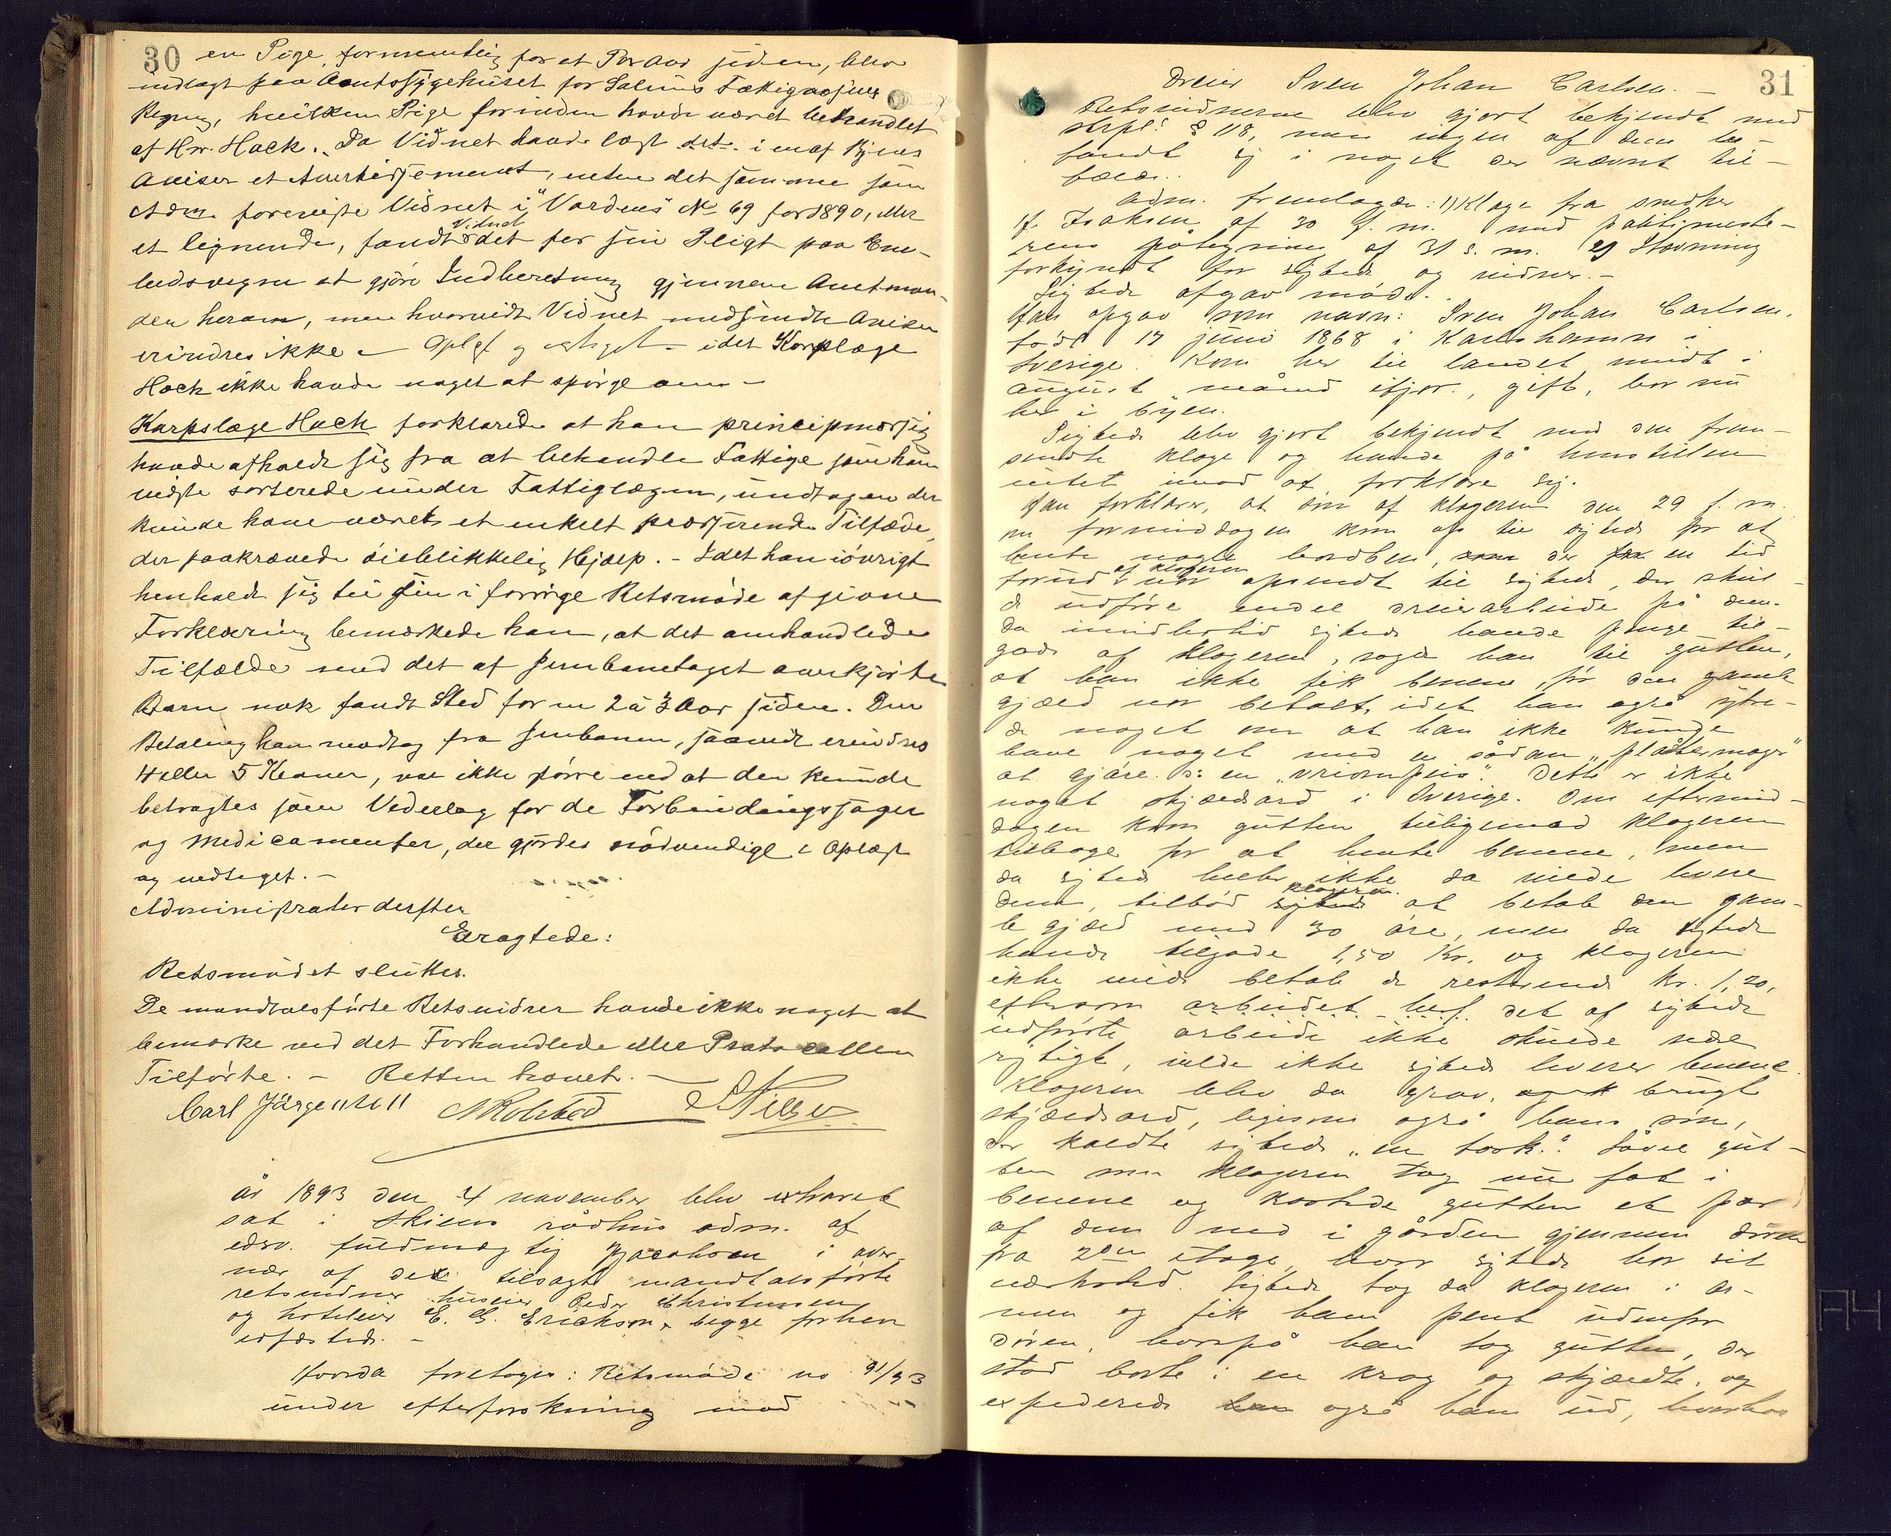 30
en Pige, formentlig for et Par Aar siden, blev
indlagt paa Amtssygehuset for Solums Fattigvæsens
Regning, hvilken Pige forinden havde været behandlet
af Hr. Hoch. Da Vidnet havde læst det i en af Byens
Aviser et Avertissement, enten det samme som
Adm. foreviste Vidnet i "Vardens" No 69 for 1890, eller
et lignende, fandt Vidnet det for sin Pligt paa Em-
bedsvegne at gjøre Indberetning gjennem Amtman-
den herom, men hvorvidt Vidnet medsendte Avisen
erindres ikke. – Oplæst og vedtaget – idet Korpslæge
Hoch ikke havde noget at spørge om –
Korpslæge Hoch forklarede at han principmæssig
havde afholdt sig fra at behandle Fattige som han
vidste sorterede under Fattiglægen, undtagen der
kunde have været et enkelt presserende Tilfælde,
der paakrævede øieblikkelig Hjælp. – Idet han iøvrigt
henholdt sig til sin i forrige Retsmøde afgivne
Forklaring bemærkede han, at det omhandlede
Tilfælde med det af Jernbanetoget overkjørte
Barn nok fandt Sted for en 2 à 3 Aar siden. Den
Betaling han modtog fra Jernbanen, saavidt erindres
4 eller 5 Kroner, var ikke større end at den kunde
betragtes som Vederlag for de Forbindingssager
og Medicamenter, der gjordes nødvendige. Oplæst
og vedtaget. –
Administrator derefter
Eragtede:
Retsmødet sluttes.
De mandtalsførte Retsvidner havde ikke noget at
bemærke ved det Forhandlede eller Protocollen
Tilførte. – Retten hævet. –
Carl Jørgensen
År 1893 den 4 november blev extraret
sat i Skiens rådhus adm. af
edsv. fuldmægtig Jacobsen i over-
vær af de tilsagte mandtalsførte
retsvidner huseier Peder Christensen
og hoteleier E. G. Erickson, begge forhen
edfæstede. –
Hvorda foretoges: Retsmøde no 91/93
under efterforskning mod
31
Dreier Sven Johan Carlsen. –
Retsvidnerne blev gjort bekjendt med
strpl. § 118, men ingen af dem be-
fandt sig i noget der nævnt til-
fælde.
Adm. fremlagde: 1) Klage fra snedker
F. Isaksen af 30 f. m. med politimeste-
rens påtegning af 31 s. m. 2) Stævning
forkyndt for sigtede og vidner. –
Sigtede afgav møde.
Han opgav som navn: Sven Johan Carlsen,
født 17 juni 1868 i Karlshamn i
Sverige. Kom her til landet midt i
august måned ifjor, gift, bor nu
her i byen.
Sigtede blev gjort bekjendt med den frem-
sendte klage og havde på henstillen
intet imod at forklare sig.
Han forklarer, at søn af klageren den 29 f. m.
om formiddagen kom op til sigtede for at
hente nogle bordben, der en tid
forud af klageren var opsendt til sigtede, der skul-
de udføre endel dreierarbeide på dem.
Da imidlertid sigtede havde penge til-
gode af klageren, sagde han til gutten,
at han ikke fik benene, før den gamle
gjæld var betalt, idet han også ytre-
de noget om at han ikke kunde
have noget med en sådan „plattenmager“
at gjøre. ɔ: en „vriompeis“. Dette er ikke
noget skjældsord i Sverige. Om eftermid-
dagen kom gutten tilligemed klageren
tilbage for at hente benene, men
da sigtede heller ikke da vilde levere
dem, tilbød klageren at betale den gam-
le gjæld med 30 øre, men da sigtede
havde tilgode 1,50 Kr. og klageren
ikke vilde betale de resterende Kr. 1,20,
eftersom arbeidet det af sigtede
udførte arbeide ikke skulde være
rigtigt, vilde ikke sigtede levere benene.
Klageren blev da grov, og brugt
skjældsord, ligesom også hans søn,
der kaldte sigtede „en tosk.“ Såvel gut-
ten som klageren tog nu fat i
benene og kastede gutten et par
af dem ned i gården gjennem døren
fra 2den etage, hvor sigtede har sit
værksted. Sigtede tog da klageren i ar-
men og fik ham pent udenfor
døren, hvorpå han tog gutten, der
stod borte i en krog og skjældte, og
expederede også ham ud, hvorhos